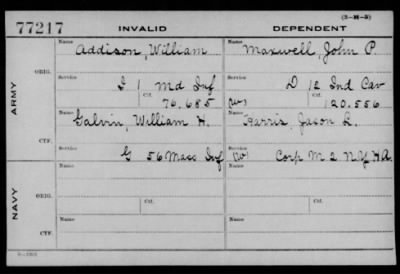 (3-H-5)
77217 INVALID DEPENDENT
Name Name
Addison, William Maxwell, John P.
ORIG.
Service Service
I 1 Md Inf D 12 Ind Cav
Ctf. Ctf.
76.685 (W) 120.556
ARMY
Name Name
Galvin, William H. Harris, Jason L.
CTF.
Service Service
G 56 Mass Inf (W) Corp M 2 N.Y. H.A.
Name Name
ORIG.
Service Ctf. Service Ctf.
NAVY
Name Name
CTF.